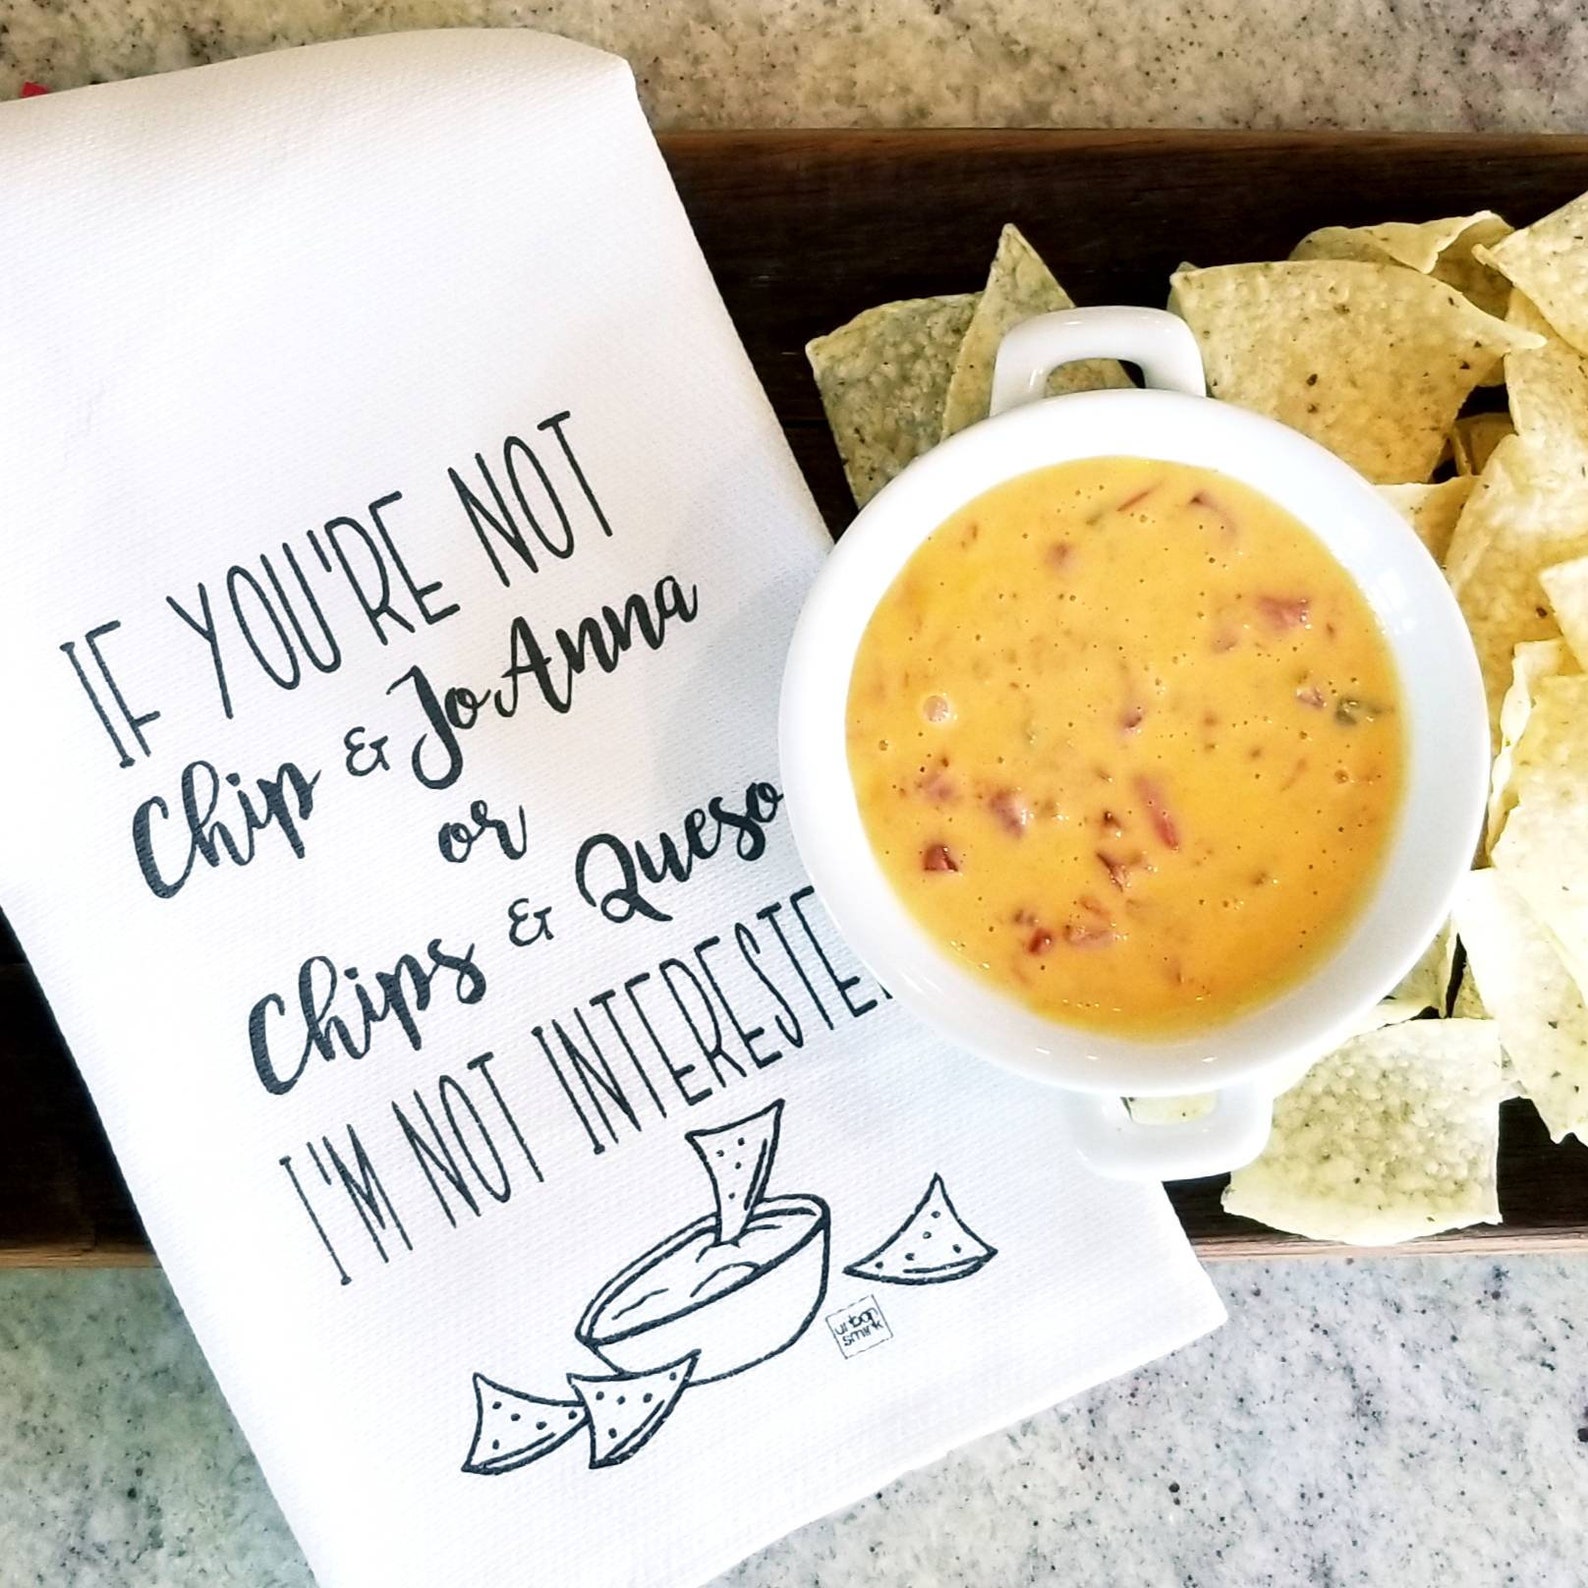 IF YOU'RE NOT
Chip & JoAnna
or
Chips & Queso
I'M NOT INTERESTE
urban
smirk